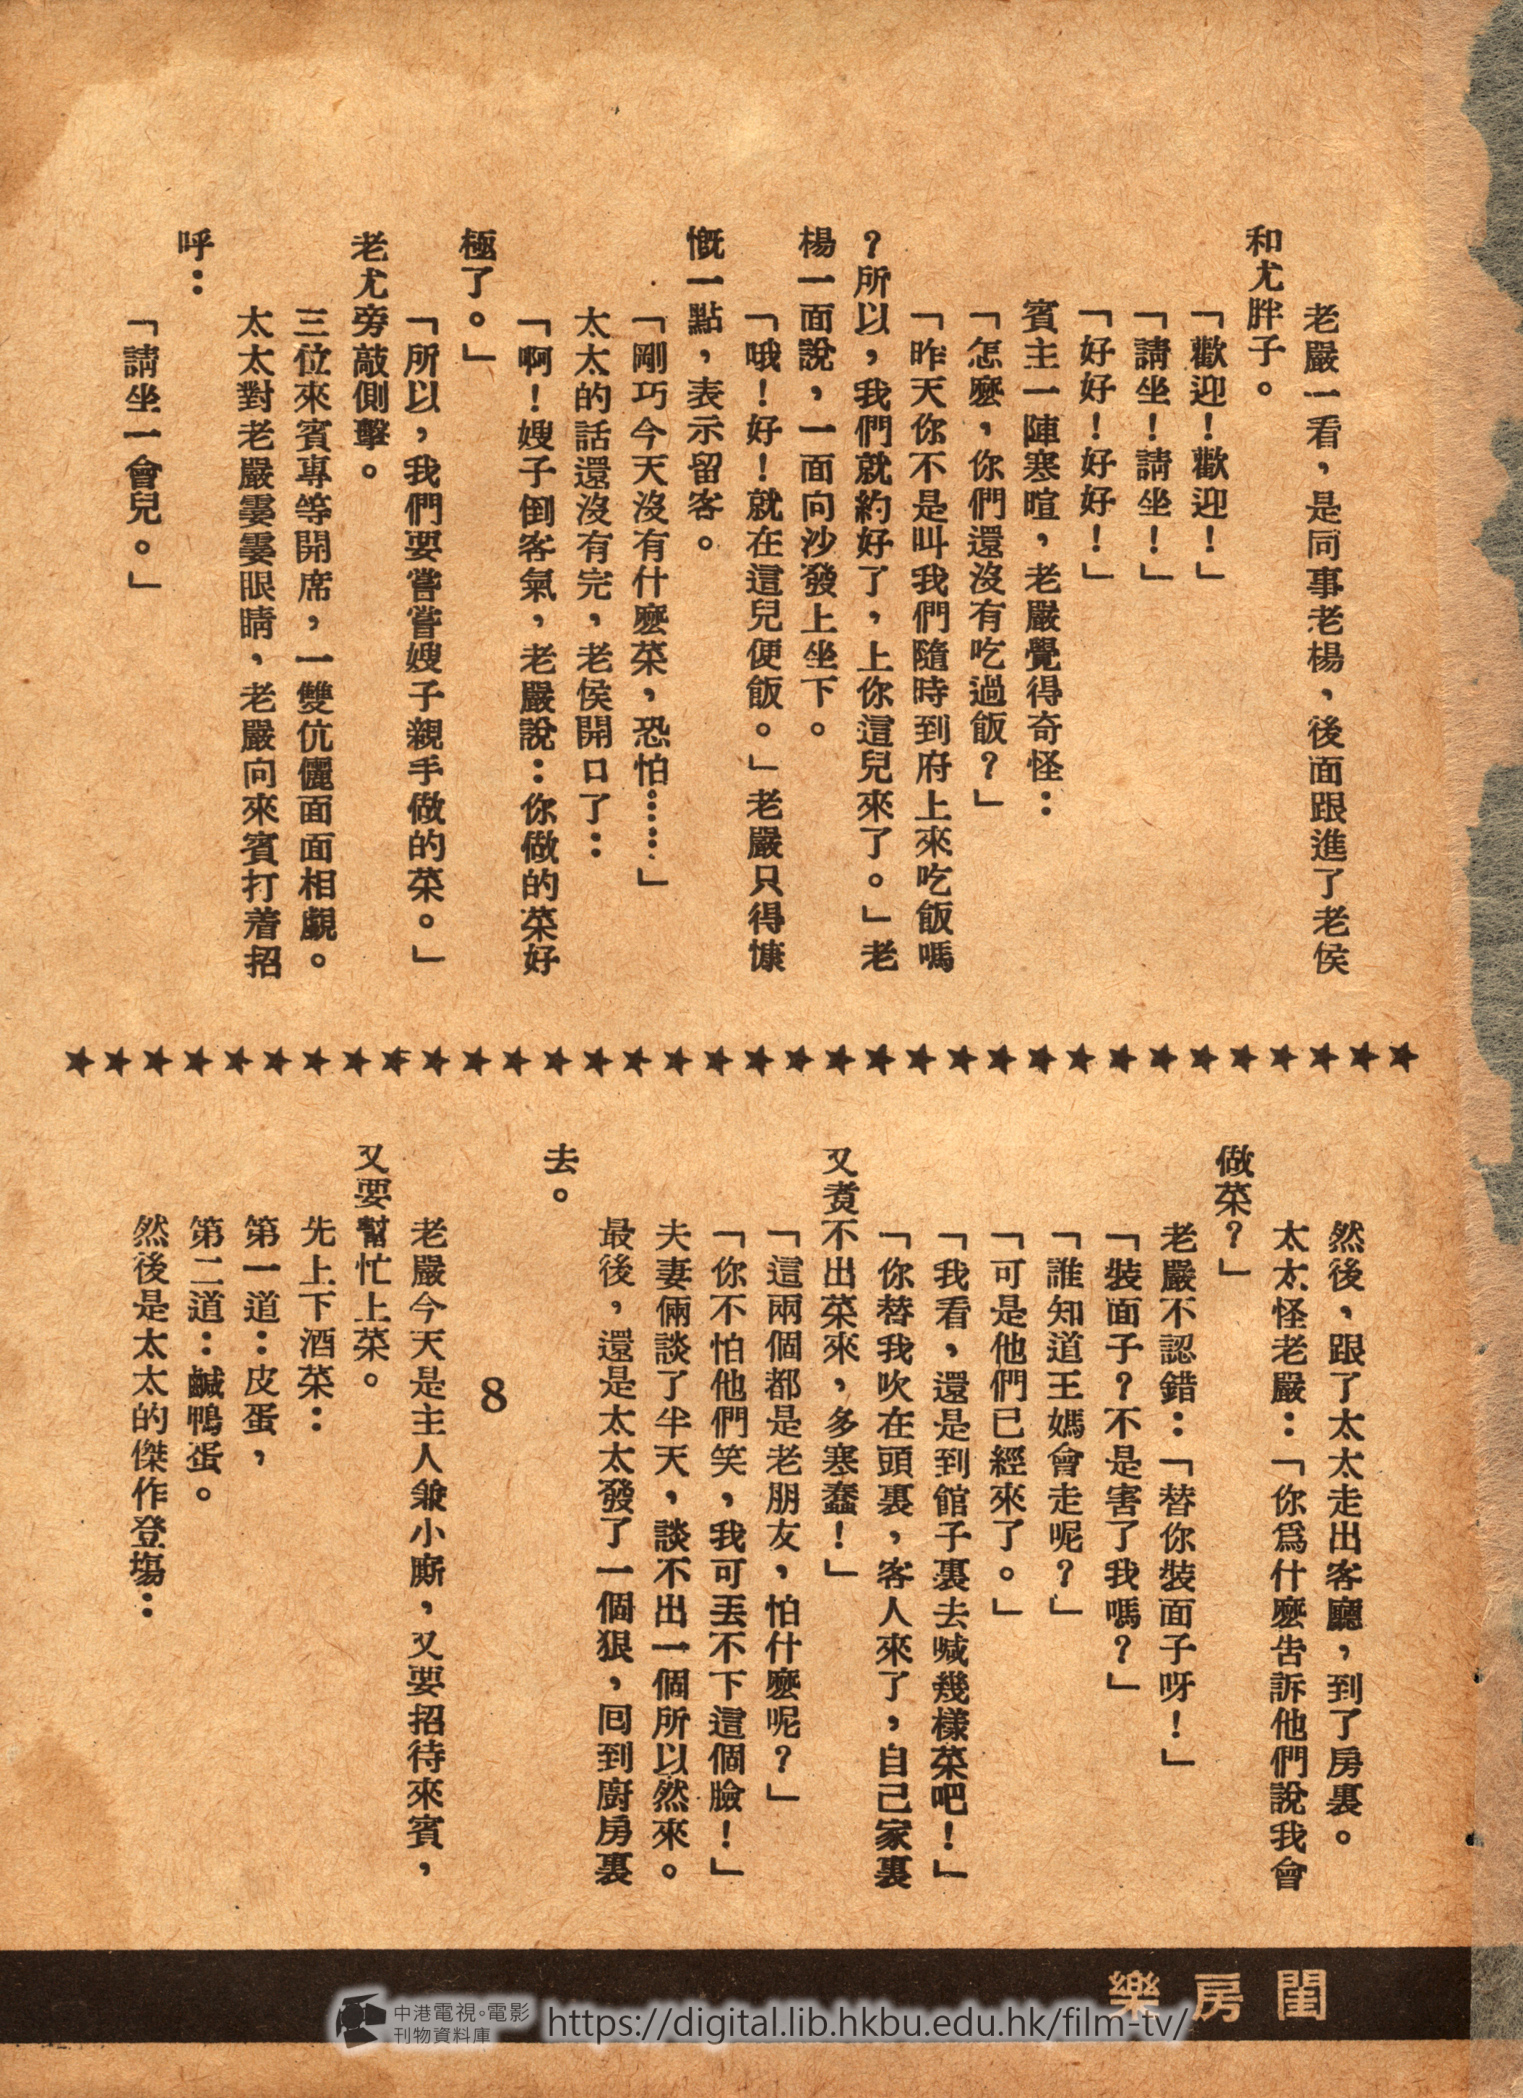 老嚴一看，是同事老楊、後面跟進了老侯
和尤胖子。
「歡迎！歡迎！」
「請坐！請坐！」
「好好！好好！」
賓主一陣寒暄，老嚴覺得奇怪：
「怎麼，你們還沒有吃過飯？」
「昨天你不是叫我們隨時到府上來吃飯嗎
？所以，我們就約好了，上你這兒來了。」老
楊一面說，一面向沙發上坐下。
「哦！好！就在這兒便飯。」老嚴只得慷
慨一點，表示留客。
「剛巧今天沒有什麼菜，恐怕……」
太太的話還沒有完，老侯開口了：
「啊！嫂子倒客氣，老嚴說：你做的菜好
極了。」
「所以，我們要嘗嘗嫂子親手做的菜。」
老尤旁敲側擊。
三位來賓專等開席，一雙伉儷面面相覷。
太太對老嚴霎霎眼睛，老嚴向來賓打着招
呼：
「請坐一會兒。」
然後，跟了太太走出客廳，到了房裏。
太太怪老嚴：「你爲什麼告訴他們說我會
做菜？」
老嚴不認錯：「替你裝面子呀！」
「裝面子？不是害了我嗎？」
「誰知道王媽會走呢？」
「可是他們已經來了。」
「我看，還是到館子裏去喊幾樣菜吧！」
「你替我吹在頭裏，客人來了，自己家裏
又煑不出菜來，多寒蠢！」
「這兩個都是老朋友，怕什麼呢？」
「你不怕他們笑，我可丟不下這個臉！」
夫妻倆談了半天，談不出一個所以然來。
最後，還是太太發了一個狠，回到廚房裏
去。
8
老嚴今天是主人兼小廝，又要招待來賓，
又要幫忙上菜。
先上下酒菜：
第一道：皮蛋，
第二道：鹹鴨蛋。
然後是太太的傑作登塲：
閨房樂
中港電視。電影
刊物資料庫
https://digital.lib.hkbu.edu.hk/film-tv/